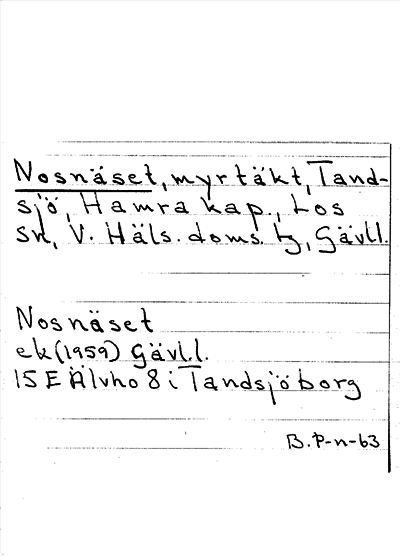 Nosnäset, myrtäkt, Tand-
sjö, Hamra kap., Los
sn, V. Häls. doms. tg, Gävll.
Nosnäset
ek (1959) Gävl.l.
15 E Älvho 8 i Tandsjöborg
B. P-n-63